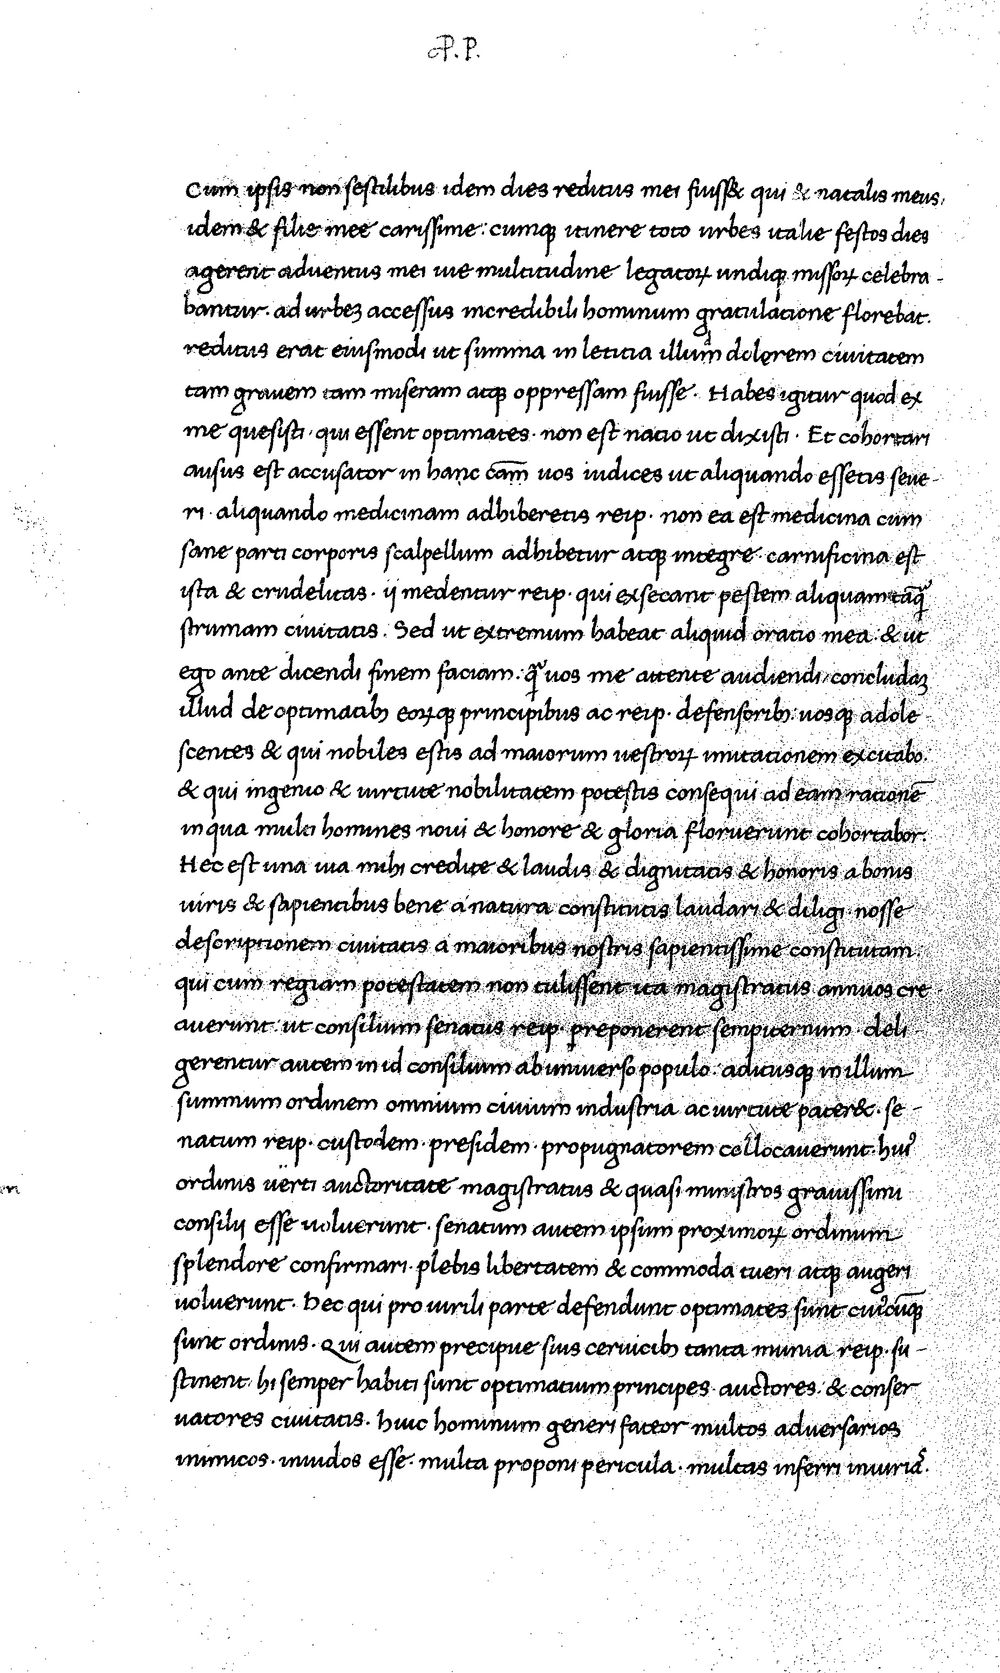 P. P.
Cum ipsis non sestilibus idem dies reditus mei fuiss& qui & natalis meus,
idem & filie mee carissime : cumq itinere toto urbes italie festos dies
agerent adventus mei uie multitudine legatoꝝ undiq missoꝝ celebra-
bantur · ad urbeꝫ accessus incredibili hominum gratulatione florebat.
reditus erat eiusmodi ut summa in letitia illum dolorem civitatem
tam gravem tam miseram atq oppressam fuisse · Habes igitur quod ex
me quesisti · qui essent optimates · non est natio ut dixisti · Et cohortari
ausus est accusator in hanc cām vos iudices ut aliquando essetis seve-
ri · aliquando medicinam adhiberetis reip · non ea est medicina cum
sane parti corporis scalpellum adhibetur atq integre · carnificina est
ista & crudelitas · ij medentur reip · qui exsecant pestem aliquam tāq
strumam civitatis · Sed ut extremum habeat aliquid oratio mea · & ut
ego ante dicendi finem faciam · q̄ vos me attente audiendi, concludaꝫ
illud de optimatibꝫ eoꝝq principibus ac reip · defensoribꝫ : vosq adole
scentes & qui nobiles estis ad maiorum vestroꝝ imitationem excitabo.
& qui ingenio & virtute nobilitatem potestis consequi ad eam rationē
in qua multi homines novi & honore & gloria floruerunt cohortabor.
Hec est una via mihi credite & laudis & dignitatis & honoris a bonis
viris & sapientibus bene a natura constitutis laudari & diligi · nosse
descriptionem civitatis a maioribus nostris sapientissime constitutam.
qui cum regiam potestatem non tulissent ita magistratus annuos cre
averunt : ut consilium senatus reip · preponerent sempiternum · deli-
gerentur autem in id consilium ab universo populo : aditusq in illum
summum ordinem omnium civium industria ac virtute pater& · se-
natum reip · custodem · presidem · propugnatorem collocaverunt · huiꝰ
ordinis uerti auctoritate magistratus & quasi ministros gravissimi
consilij esse voluerunt · senatum autem ipsum proximoꝝ ordinum
splendore confirmari · plebis libertatem & commoda tueri atq augeri
voluerunt · Hec qui pro virili parte defendunt optimates sunt cuiꝰcūq
sunt ordinis · Qui autem precipue suis cervicibꝫ tanta munia reip · su-
stinent · hi semper habiti sunt optimatium principes · auctores · & conser
vatores civitatis · huic hominum generi fateor multos adversarios
inimicos · invidos esse · multa proponi pericula · multas inferri iniuriaˢ.